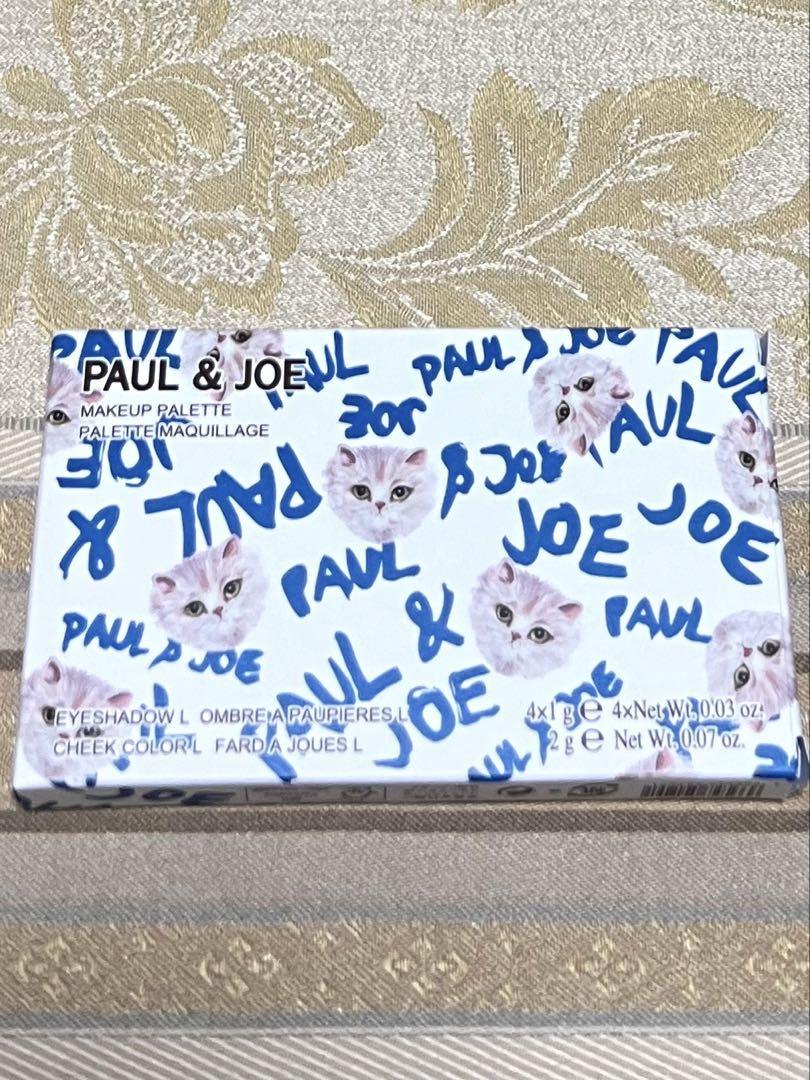 PAUL
PAUL
PAUL & JOE
PAUL
PAUL & JOE
MAKEUP PALETTE
PALETTE MAQUILLAGE
JOE
PAUL
JOE
PAUL
& JOE
&
JOE
JOE
PAUL
PAUL & JOE
&
PAUL
PAUL
JOE
EYESHADOW L OMBRE A PAUPIERES L
4x1 g e 4xNet Wt. 0.03 oz.
CHEEK COLOR L FARD A JOUES L
2 g e Net Wt. 0.07 oz.
JOE